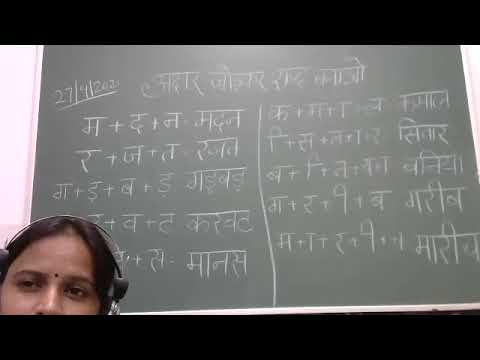 27/4/2020 अक्षर जोड़कर शब्द बनाओ
म + द + न = मदन
र + ज + त = रजत
ग + ड़ + ब + ड़ गड़बड़
+ व + ट करवट
+ स = मानस
क + म + ा + ल = कमाल
ि + स + त + ा + र सितार
ब + ि + न + य + ा बनिया
ग + र + ी + ब गरीब
म + ा + र + ी + मारीच